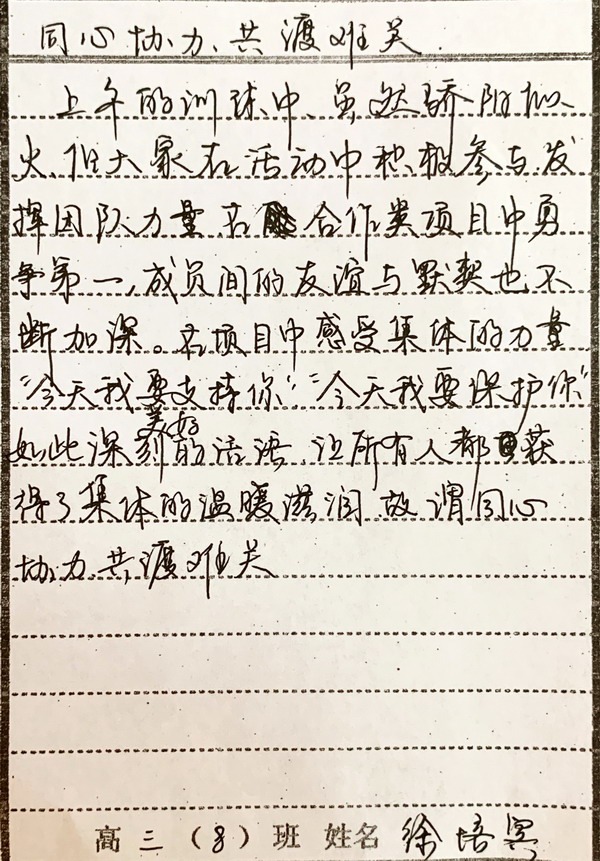 同心协力、共渡难关
上午的训练中、虽然骄阳似
火、但大家在活动中积极参与发
挥团队力量、在合作类项目中勇
争第一,成员间的友谊与默契也不
断加深。在项目中感受集体的力量
“今天我要支持你”“今天我要保护你”
美好
如此深刻的活语、让所有人都获
得了集体的温暖滋润、故谓同心
协力、共渡难关
高三(8)班 姓名 徐培